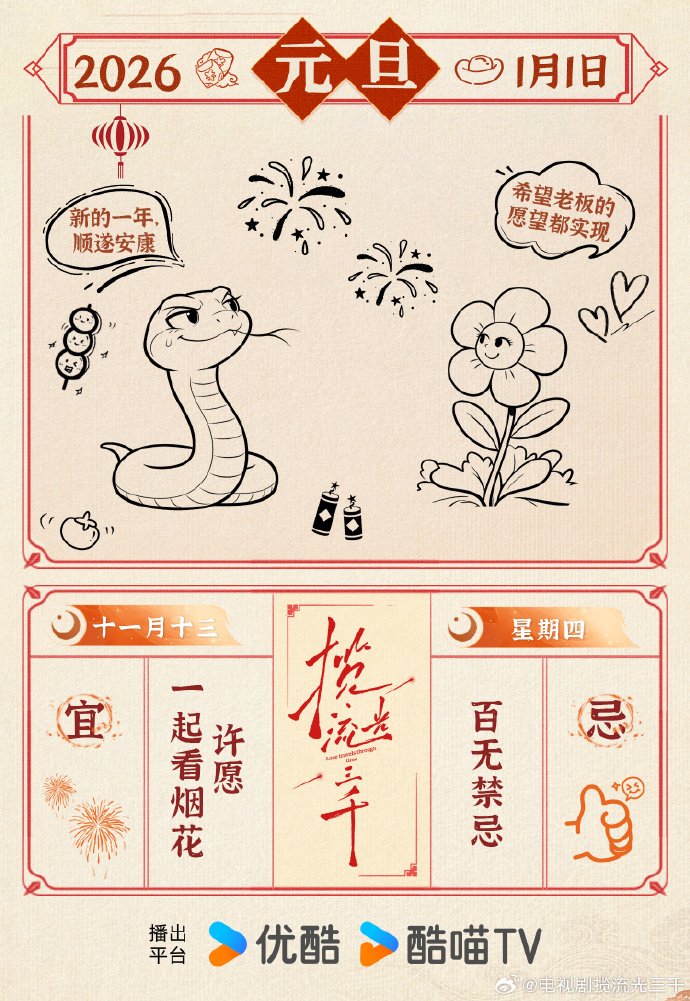 2026 元旦 1月1日
新的一年,
顺遂安康
希望老板的
愿望都实现
十一月十三
星期四
宜
许愿
一起看烟花
揽流光三千
Love travels through
time
百无禁忌
忌
播出
平台
优酷 酷喵TV
@电视剧揽流光三千